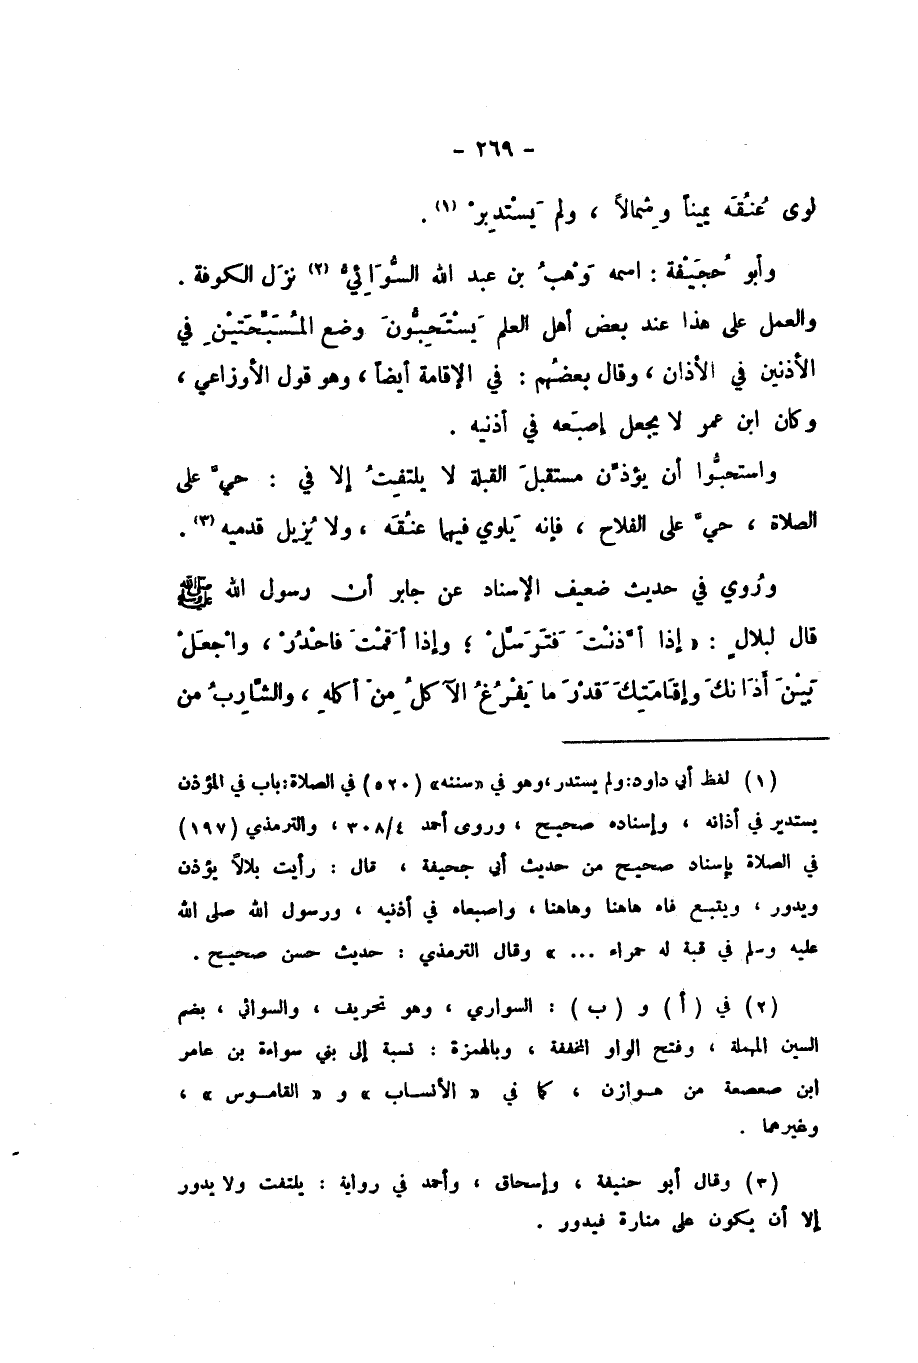 - ٢٦٩ -
لوى عُنُقَه يميناً وشِمالاً ، ولم يَسْتدِيرْ (١) .
وأبو جُحَيْفة : اسمه وَهْبُ بن عبد الله السُّوَائِيُّ (٢) نزَل الكوفة .
والعمل على هذا عند بعض أهل العلم يَسْتَحِبُّونَ وضع المُسَبِّحَتَيْنِ في
الأذنين في الأذان ، وقال بعضُهم : في الإقامة أيضاً ، وهو قول الأوزاعي ،
وكان ابن عمر لا يجعل إصبَعه في أذنيه .
واستحبُّوا أن يؤذِّن مستقبلَ القبلة لا يلتفِتُ إلا في : حيَّ على
الصلاة ، حيَّ على الفلاح ، فإنه يَلوي فيها عنُقَه ، ولا يُزيل قدميه (٣) .
ورُوي في حديث ضعيف الإسناد عن جابر أن رسول الله ﷺ
قال لبلالٍ : « إذا أذَّنْتَ فَتَرَسَّلْ ؛ وإذا أَقَمْتَ فاحْدُرْ ، واجْعَلْ
بَيْنَ أَذَانكَ وإِقَامَتِكَ قَدْرَ ما يَفْرُغُ الآكلُ مِنَ أَكلهِ ، والشَّارِبُ من
(١) لفظ أبي داود: ولم يستدر ، وهو في «سننه» (٥٢٠) في الصلاة: باب في المؤذن
يستدير في أذانه ، وإسناده صحيح ، وروى أحمد ٣٠٨/٤ ، والترمذي (١٩٧)
في الصلاة بإسناد صحيح من حديث أبي جحيفة ، قال : رأيت بلالاً يؤذن
ويدور ، ويتبع فاه هاهنا وهاهنا ، واصبعاه في أذنيه ، ورسول الله صلى الله
عليه وسلم في قبة له حمراء ... » وقال الترمذي : حديث حسن صحيح .
(٢) في ( أ ) و ( ب ) : السواري ، وهو تحريف ، والسوائي ، بضم
السين المهملة ، وفتح الواو المخففة ، وبالهمزة : نسبة إلى بني سواءة بن عامر
ابن صعصعة من هوازن ، كما في « الأنساب » و « القاموس » ،
وغيرهما .
(٣) وقال أبو حنيفة ، وإسحاق ، وأحمد في رواية : يلتفت ولا يدور
إلا أن يكون على منارة فيدور .